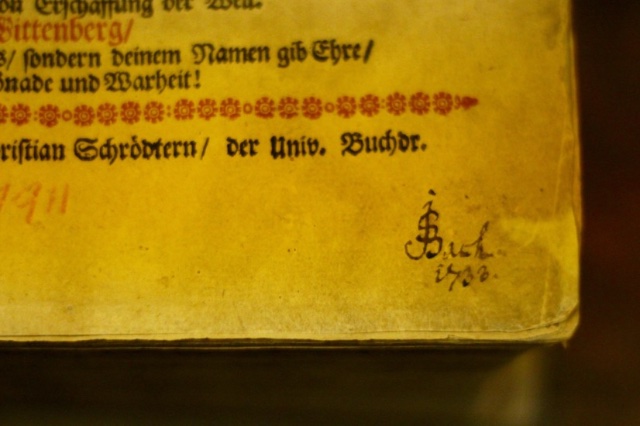 von Erschaffung der Welt.
Wittenberg/
sondern deinem Namen gib Ehre/
Gnade und Warheit!
Christian Schrödtern/ der Univ. Buchdr.
JSBach.
1733.